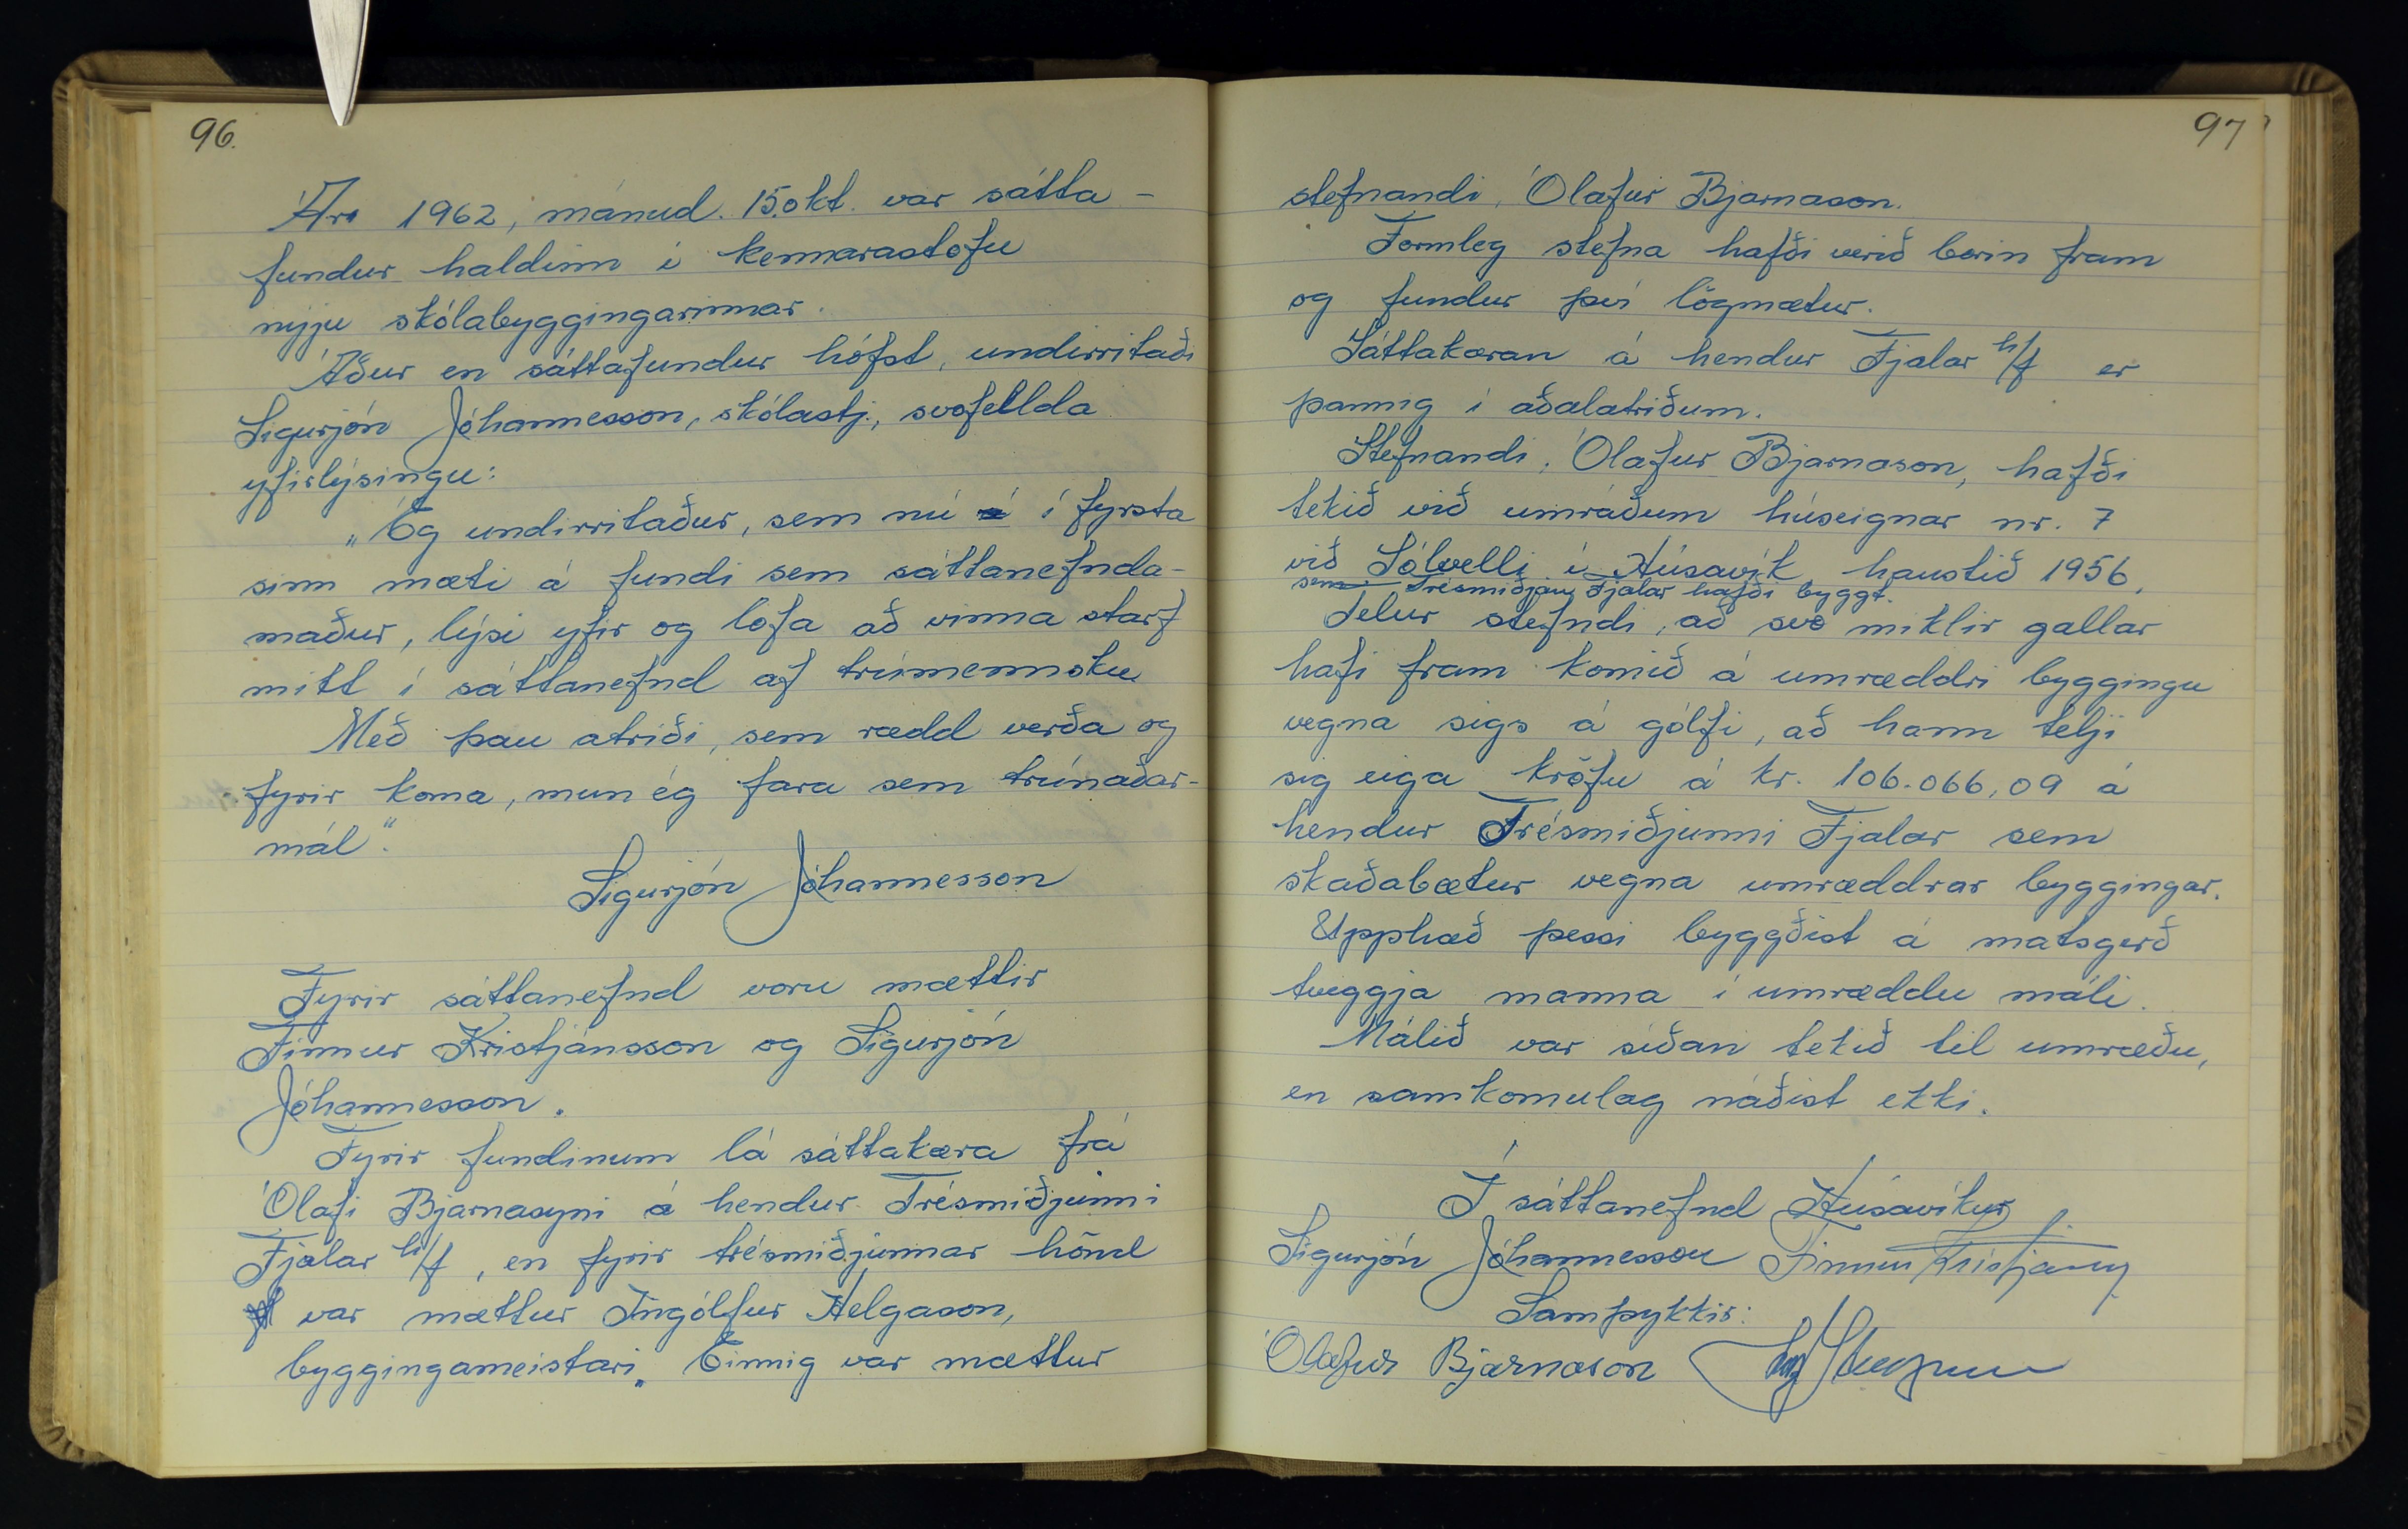 96.
Árᵒ 1962, mánud. 15. okt. var sátta-
fundur haldinn í kennarastofu
nýju skólabyggingarinnar.
Áður en sáttafundur hófst, undirritaði
Sigurjón Jóhannesson, skólastj., svofellda
yfirlýsingu:
„Ég undirritaður, sem nú í fyrsta
sinn mæti á fundi sem sáttanefnda-
maður, lýsi yfir og lofa að vinna starf
mitt í sáttanefnd af trúmennsku
Með þau atriði, sem rædd verða og
fyrir koma, mun ég fara sem trúnaðar-
mál“.
Sigurjón Jóhannesson
Fyrir sáttanefnd voru mættir
Finnur Kristjánsson og Sigurjón
Jóhannesson.
Fyrir fundinum lá sáttakæra frá
Ólafi Bjarnasyni á hendur Trésmiðjunni
Fjalar h/f, en fyrir trésmiðjunnar hönd
var mættur Ingólfur Helgason,
byggingameistari. Einnig var mættur
97
stefnandi, Ólafur Bjarnason.
Formleg stefna hafði verið borin fram
og fundur því lögmætur.
Sáttakæran á hendur Fjalar h/f er
þannig í aðalatriðum.
Stefnandi, Ólafur Bjarnason, hafði
tekið við umráðum húseignar nr. 7
við Sólvelli í Húsavík haustið 1956,
sem Trésmiðjan Fjalar hafði byggt.
Telur stefndi, að svo miklir gallar
hafi fram komið á umræddri byggingu
vegna sigs á gólfi, að hann telji
sig eiga kröfu á kr. 106.066,09 á
hendur Trésmiðjunni Fjalar sem
skaðabætur vegna umræddrar byggingar.
Upphæð þessi byggðist á matsgerð
tveggja manna í umræddu máli.
Málið var síðan tekið til umræðu,
en samkomulag náðist ekki.
Í sáttanefnd Húsavíkur
Sigurjón Jóhannesson Finnur Kristjánss
Samþykkir:
Ólafur Bjarnason